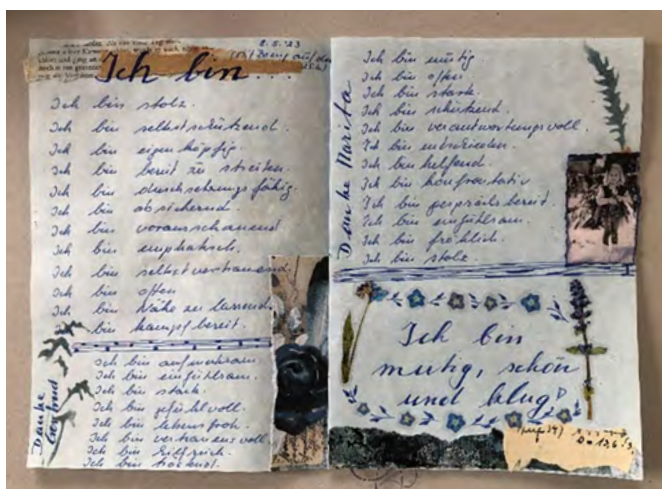 2.5.'23
Ich bin...
Ich bin stolz.
Ich bin selbstschützend.
Ich bin eigenköpfig.
Ich bin bereit zu streiten.
Ich bin durchsetzungsfähig.
Ich bin absichernd.
Ich bin vorausschauend
Ich bin emphatisch.
Ich bin selbstvertrauend.
Ich bin offen
Ich bin Nähe zu lassend.
Ich bin kampfbereit.
Danke
Ich bin aufmerksam.
Ich bin einfühlsam.
Ich bin stark.
Ich bin gefühlvoll.
Ich bin lebensfroh.
Ich bin vertrauensvoll
Ich bin hilfreich.
Ich bin
Danke Marita
Ich bin mutig.
Ich bin offen
Ich bin stark.
Ich bin schützend.
Ich bin verantwortungsvoll.
Ich bin
Ich bin helfend.
Ich bin konfrontativ
Ich bin gesprächsbereit.
Ich bin einfühlsam.
Ich bin fröhlich.
Ich bin stolz
Ich bin
mutig, schön
und klug!